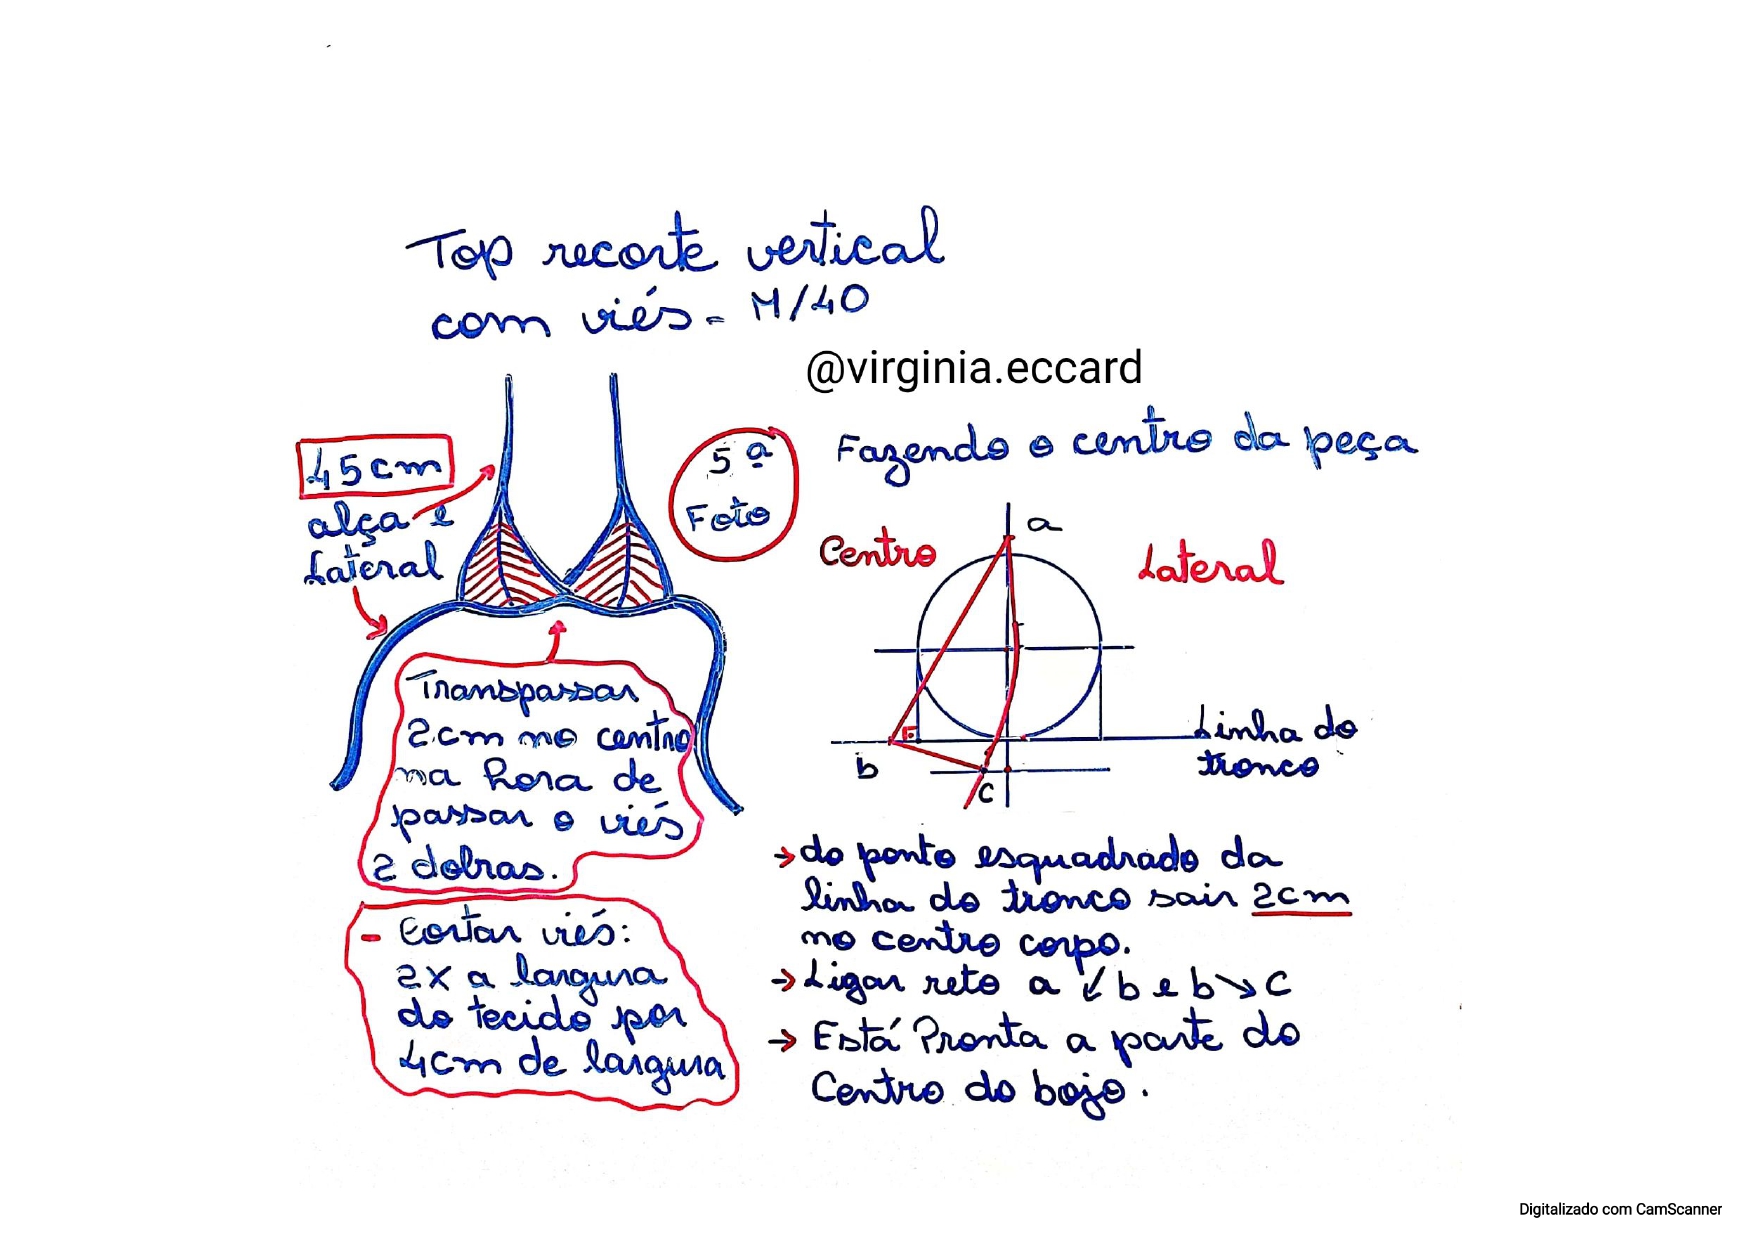 Top recorte vertical
com viés - M/40
@virginia.eccard
45cm
alça e
Lateral
5ª
Foto
Transpassar
2cm no centro
na hora de
passar o viés
2 dobras.
- Cortar viés:
2x a largura
do tecido por
4cm de largura
Fazendo o centro da peça
a
Centro
Lateral
E
Linha do
tronco
b
c
→ do ponto esquadrado da
linha do tronco sair 2cm
no centro corpo.
→ Ligar reto a ↙ b e b ↘ c
→ Está Pronta a parte do
Centro do bojo.
Digitalizado com CamScanner